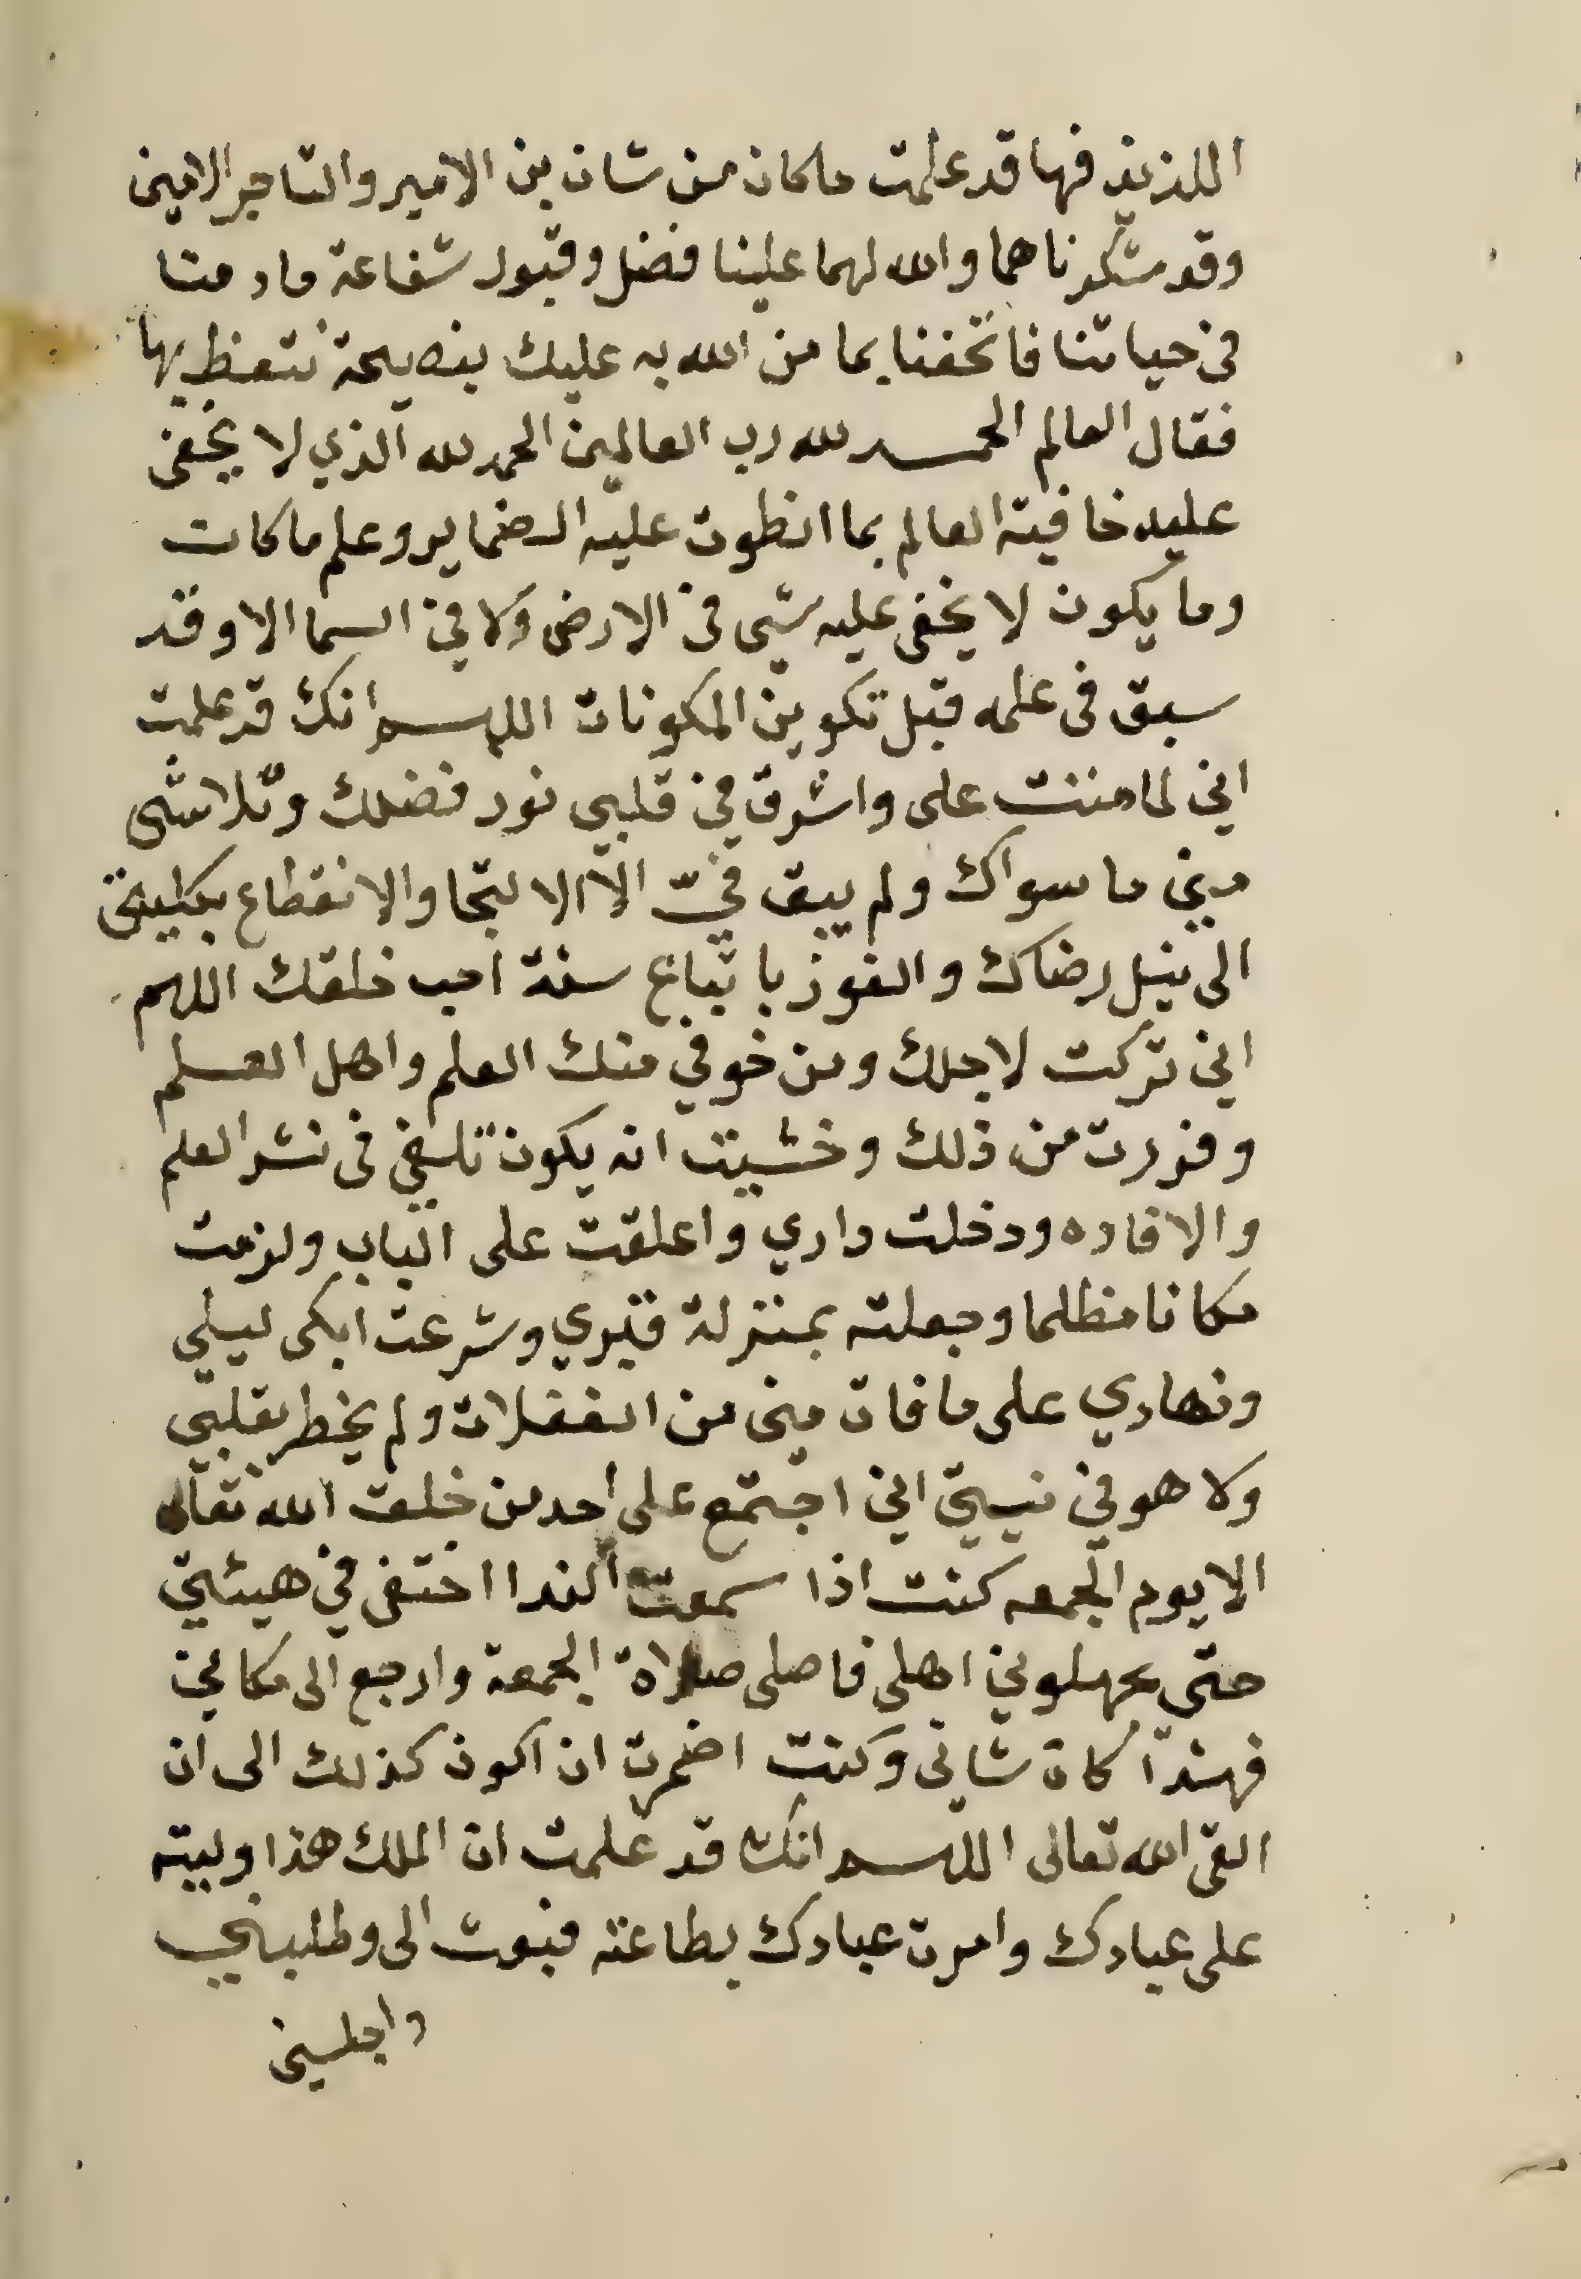 اللذيذ فها قد علمت ماكان من شان بن الامير والتاجر الامين
وقد شكرناهما والله لهما علينا فضل وقبول شفاعة ما دمنا
في حياتنا فاتحفنا بما من الله به عليك بنصيحة نتعظ بها
فقال العالم الحمد لله رب العالمين الحمد لله الذي لا يخفى
عليه خافية العالم بما انطوت عليه الضماير وعلم ما كان
وما يكون لا يخفى عليه شي في الارض ولا في السما الا وقد
سبق في علمه قبل تكوين المكونات اللهم انك قد علمت
اني لما مننت على واشرق في قلبي نور فضلك وتلاشى
مني ما سواك ولم يبق فيّ الا الالتجا والانقطاع بكليتى
الى نيل رضاك والفوز باتباع سنة احب خلقك اللهم
اني تركت لاجلك ومن خوفي منك العلم واهل العلم
وفررت من ذلك وخشيت انه يكون تلفي في نشر العلم
والافاده ودخلت داري واعلقت على الباب ولزمت
مكانا مظلما وجعلته بمنزلة قبري وشرعت ابكى ليلي
ونهاري على ما فات مني من الغفلات ولم يخطر بقلبي
ولا هو في نيتي اني اجتمع على احد من خلق الله تعالى
الا يوم الجمعه كنت اذا سمعت الندا اختفى في هيئتي
حتى يجهلوني اهلى فاصلى صلاة الجمعة وارجع الى مكاني
فهذا كان شانى وكنت اضمرت ان اكون كذلك الى ان
القى الله تعالى اللهم انك قد علمت ان الملك هذا وليته
على عبادك وامرت عبادك بطاعته فبعث الى وطلبني
واجلسني